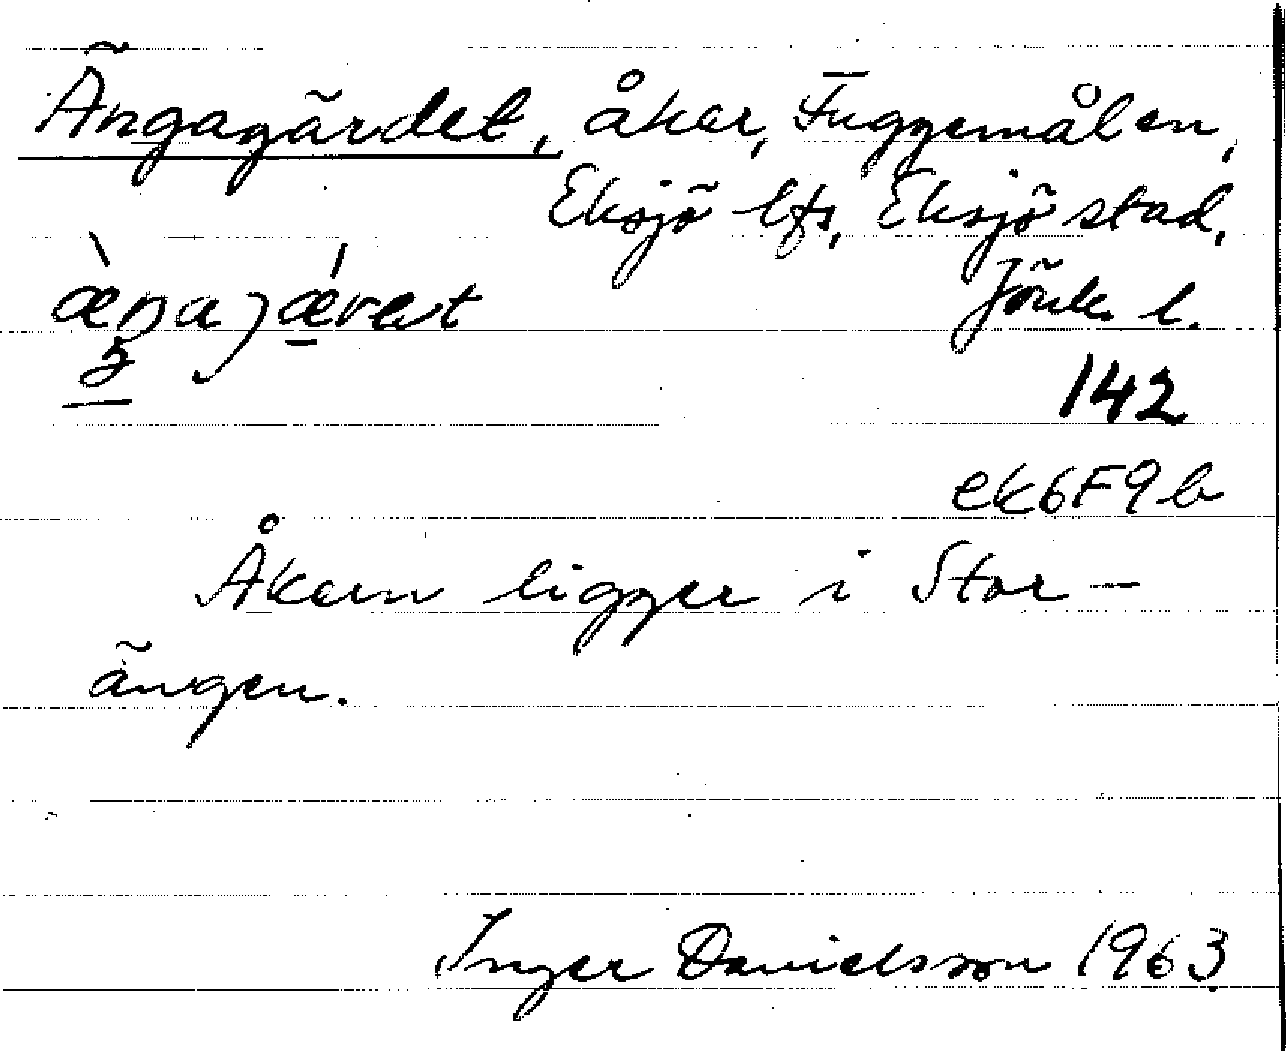 Ängagärdet, åker, Fuggemålen,
Eksjö lfs, Eksjö stad,
Jönk. l.
142
ek6F9b
Åkern ligger i Stor-
ängen.
Inger Danielsson 1963